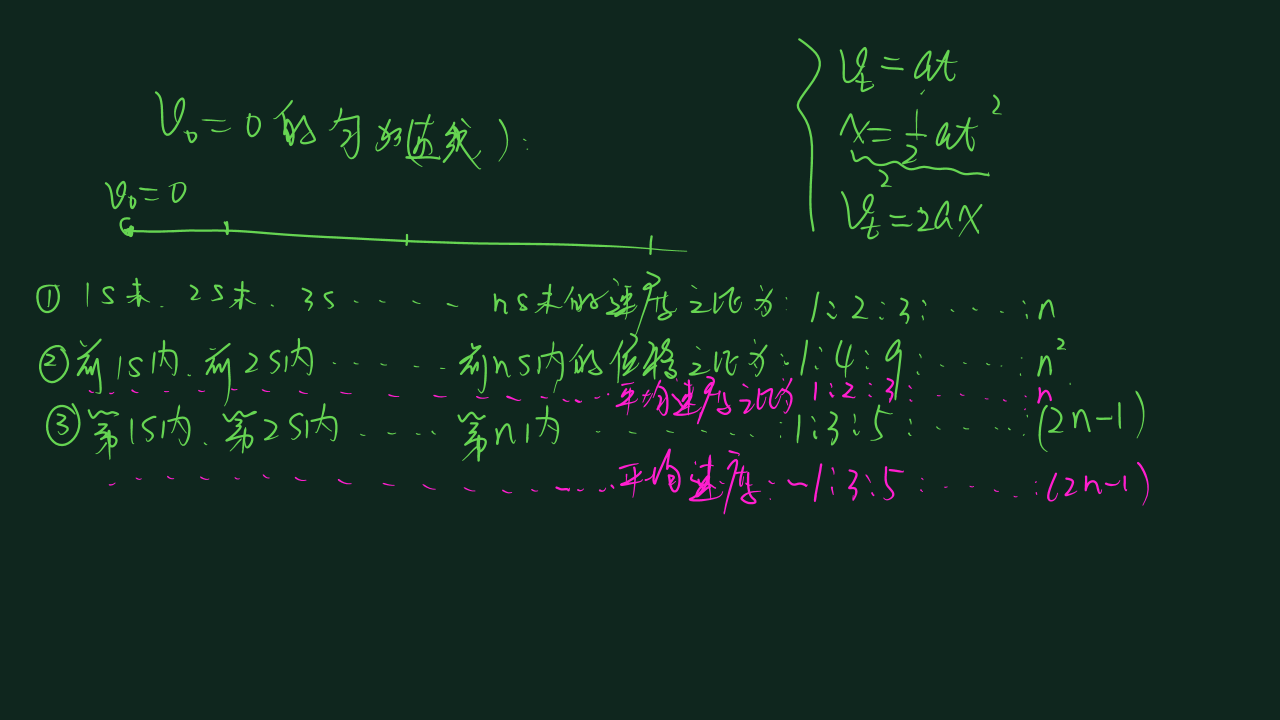 V₀=0的匀加(直线):
Vt=at
x=½at²
Vt²=2ax
V₀=0
① 1s末.2s末.3s····· ns末的速度之比为:1:2:3:·····:n
②前1s内.前2s内······前ns内的位移之比为:1:4:9:·····:n²
··················平均速度之比为1:2:3:······n
③第1s内.第2s内·····第n内·········:1:3:5:······:(2n-1)
··················平均速度:~1:3:5:······:(2n-1)